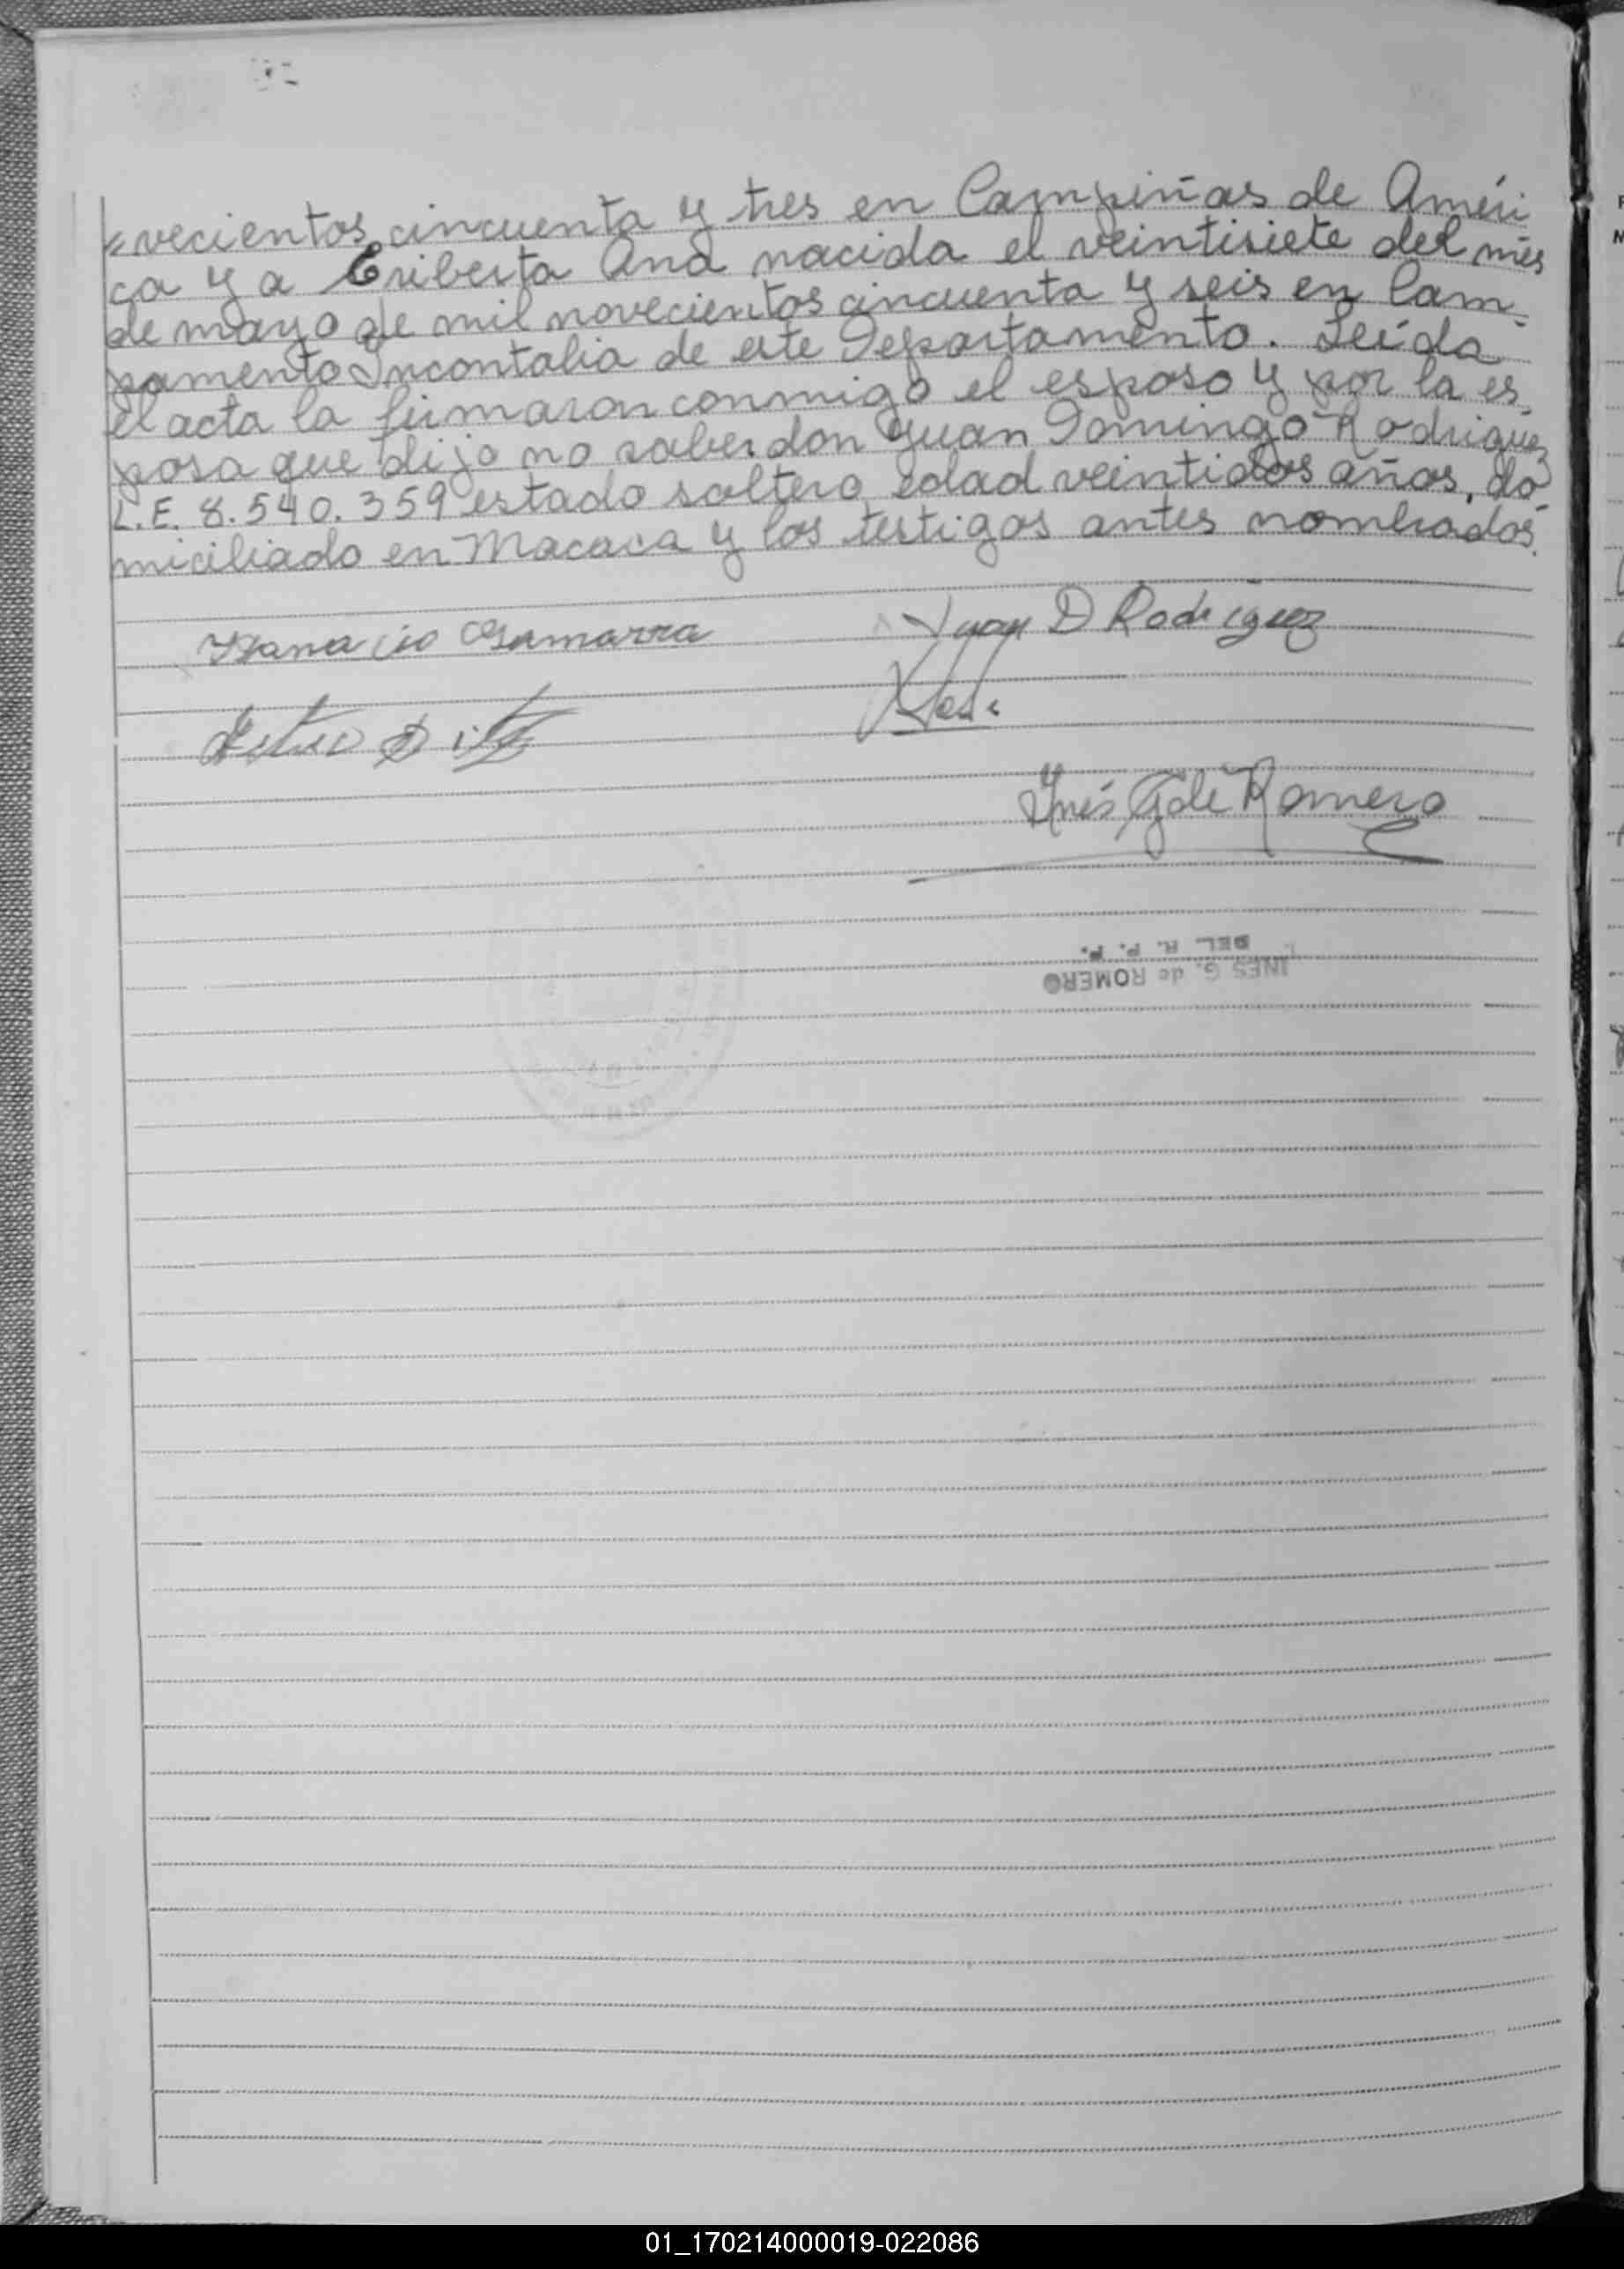 vecientos cincuenta y tres en Campiñas de Améri
ca y a Eriberta Ana nacida el veintisiete del mes
de mayo de mil novecientos cincuenta y seis en Cam
pamento Incontalia de este Departamento. Leída
el acta la firmaron conmigo el esposo y por la es
posa que dijo no saber don Juan Domingo Rodriguez
L.E. 8.540.359 estado soltero edad veintidos años, do
miciliado en Macaca y los testigos antes nombrados.
Gamarra Juan D Rodriguez
Inés G de Romero
INES G. de ROMERO
DEL R. P. P.
01_170214000019-022086